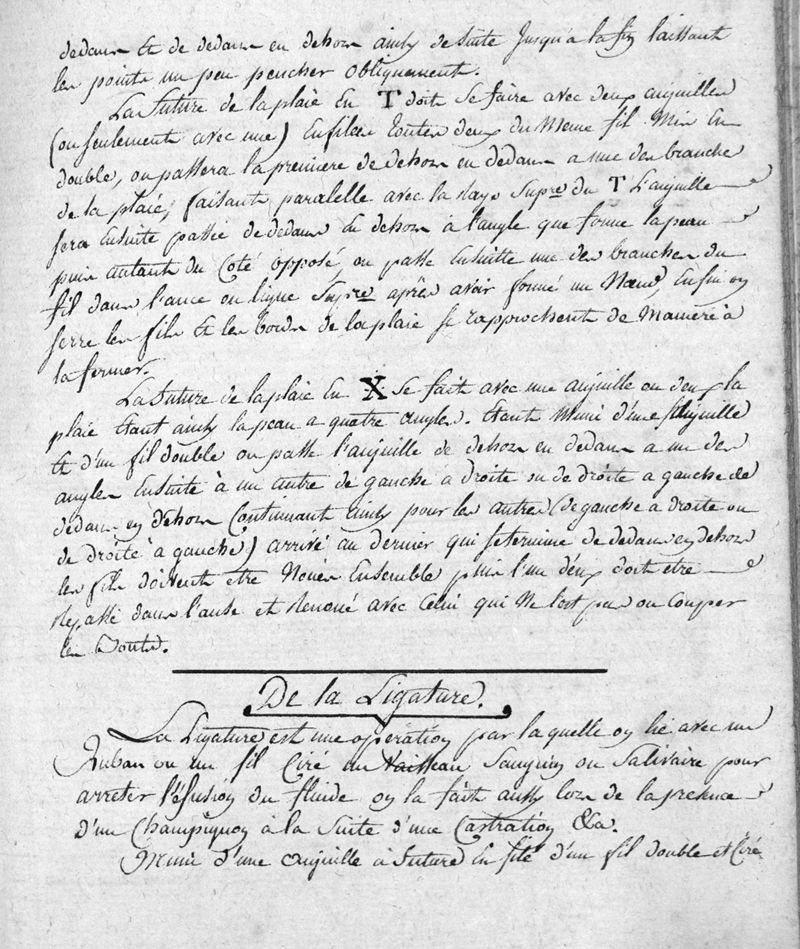 dedans & de dedans en dehors ainsy de suite Jusqu'a la fin laissant
les points un peu pencher obliquement.
La Suture de la plaie En T doit se faire avec deux aiguilles
(ou seulement avec une) Enfilées toutes deux du Meme fil Mis En
double, on passera la premiere de dehors en dedans a une des branche
de la plaie, faisant paralelle avec la Raye Supre du T L'aiguille
sera Ensuite passée de dedans en dehors à l'angle que forme la peau
puis autant du Coté opposé, on passe Ensuitte une des branches du
fil dans l'ance ou ligne Supre après avoir formé un Nœud, Enfin on
serre les fils & les bords de la plaie se rapprochent de Maniere à
la fermer.
La Suture de la plaie En X se fait avec une aiguille ou deux la
plaie Etant ainsy la peau a quatre angles. Etant Muni d'une Aiguille
& d'un fil double on passe l'aiguille de dehors en dedans a un des
angles Ensuite à un autre de gauche a droite ou de droite a gauche de
dedans en dehors Continuant ainsy pour les autres (de gauche a droite ou
de droite à gauche) arrivé au dernier qui se termine de dedans en dehors
les fils doivent etre Noués Ensemble puis l'un d'eux doit etre
Repassé dans l'anse et Renoué avec Celui qui Ne l'est pas on Couper
les bouts.
De la Ligature.
La Ligature est une opération par laquelle on lie avec un
Ruban ou un fil Ciré un Vaisseau Sanguin ou Salivaire pour
arreter l'éfusion du fluide on la fait aussy lors de la presence
d'un Champignon à la Suite d'une Castration &a.
Muni d'une aiguille à Suture En filé d'un fil double et Ciré